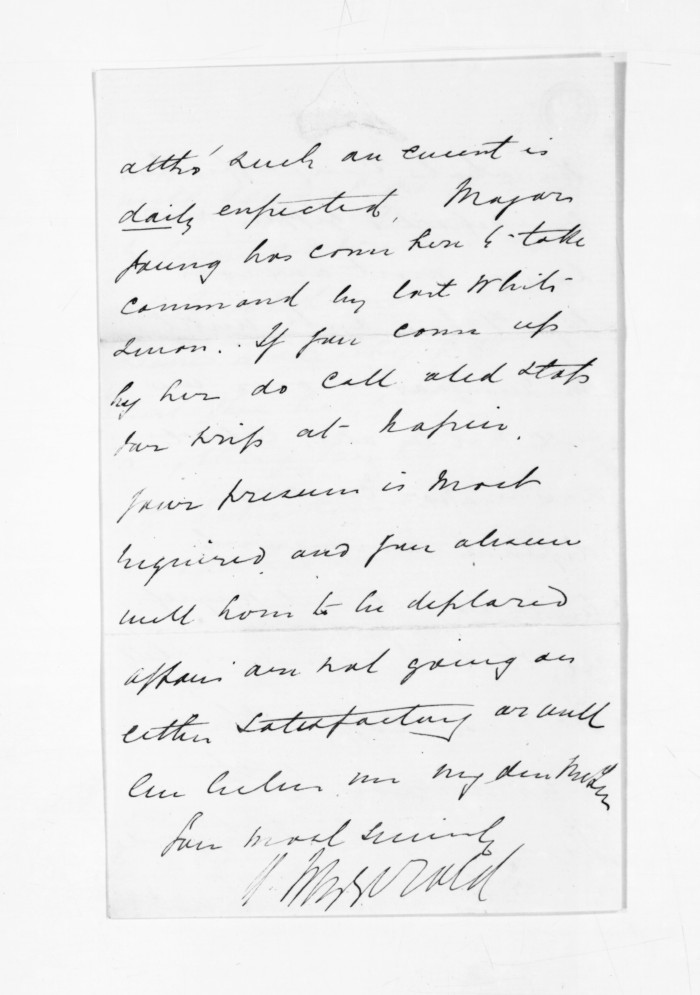 altho' such an event is
daily expected, Major
Young has come here to take
command by last White
Swan. If you come up
by her do call and stop
one trip at Napier.
Your presence is most
required and your absence
will have to be deplored
affairs are not going on
either satisfactory or well
believe me my dear McLean
Your most sincerely
Fitzgerald